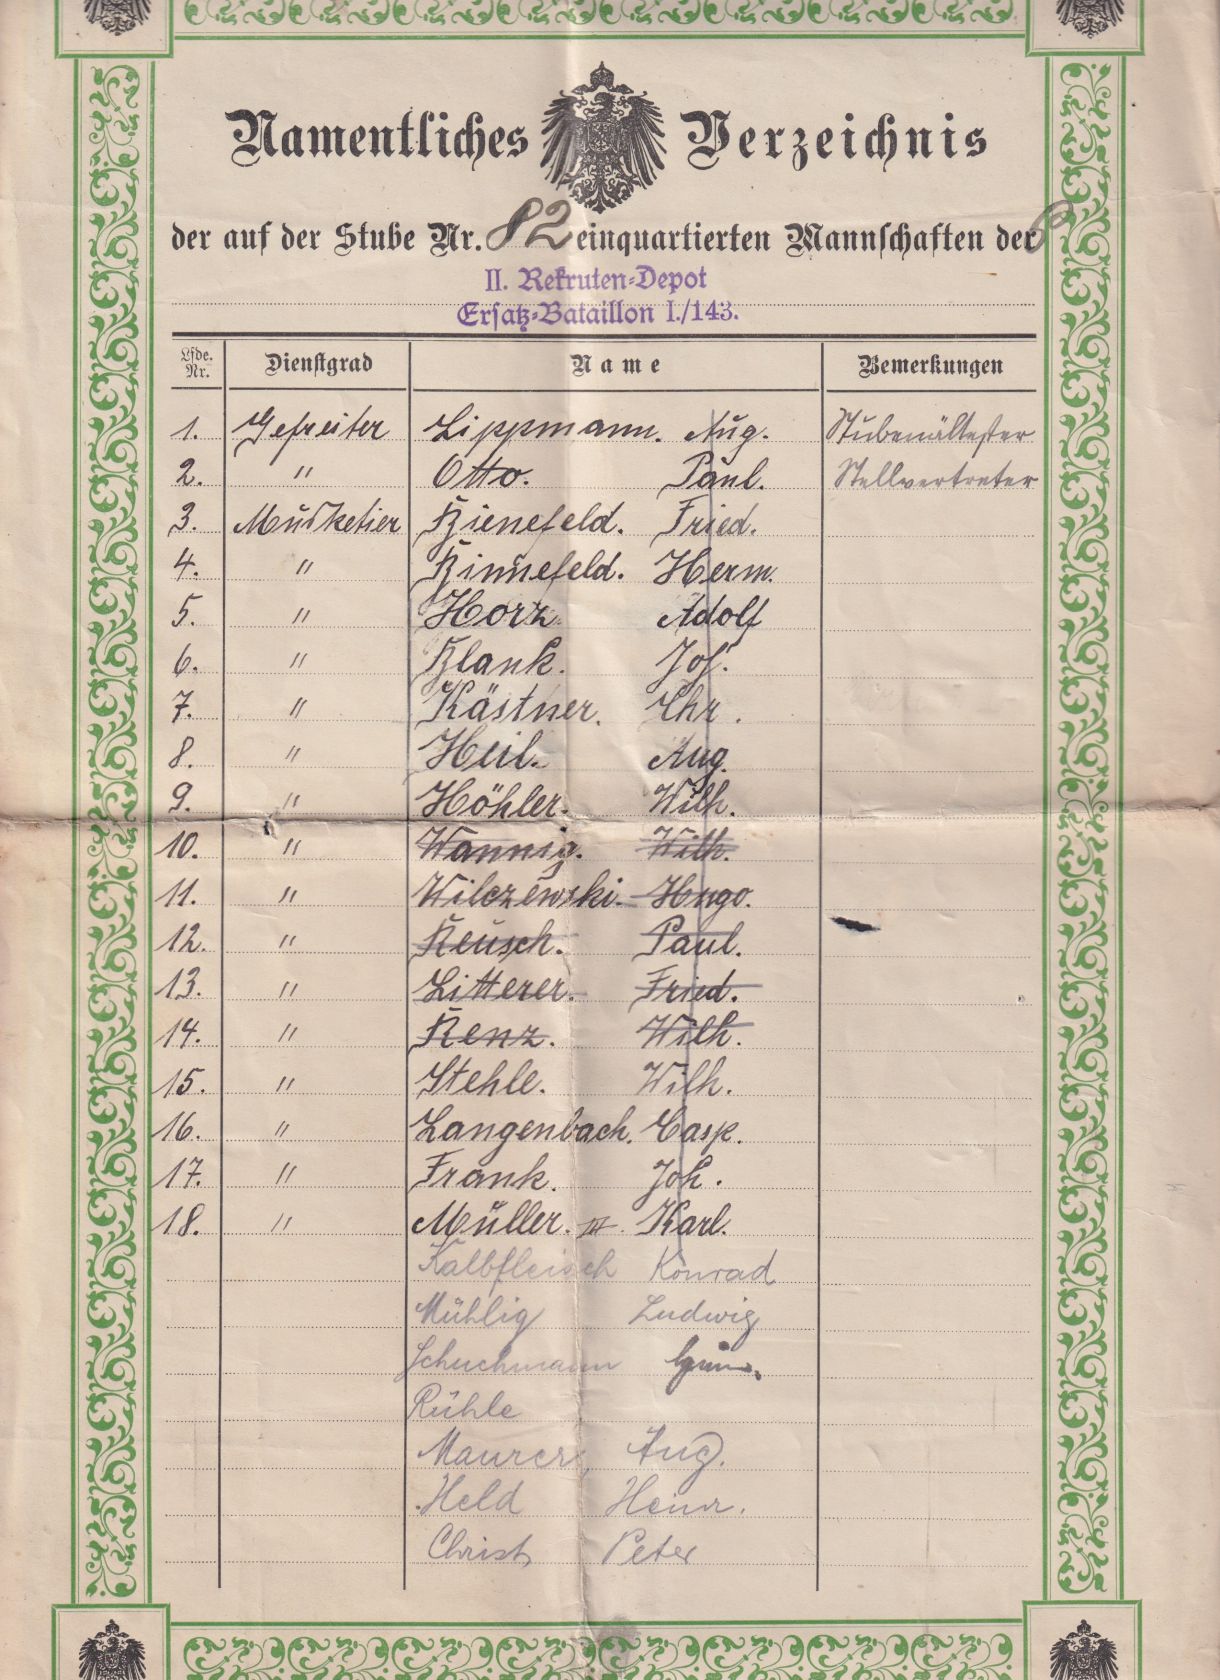 Namentliches Verzeichnis
der auf der Stube Nr. 82 einquartierten Mannschaften der
II. Rekruten-Depot
Ersatz-Bataillon I./143.
Lfde. Nr. Dienstgrad Name Bemerkungen
1. Gefreiter Lippmann. Aug. Stubenältester
2. " Otto. Paul. Stellvertreter
3. Musketier Bienefeld. Fried.
4. " Binnefeld. Herm.
5. " Horz Adolf
6. " Blank. Joh.
7. " Kästner. Chr.
8. " Heil. Aug.
9. " Höhler. Wilh.
10. " Wannig. Wilh.
11. " Wilczewski. Hugo.
12. " Reusch. Paul.
13. " Litterer. Fried.
14. " Renz. Wilh.
15. " Stehle. Wilh.
16. " Langenbach. Casp.
17. " Frank. Joh.
18. " Müller. III. Karl.
Kalbfleisch Konrad
Mühlig Ludwig
Schuchmann
Rühle
Maurer, Aug.
Held Heinr.
Christ Peter